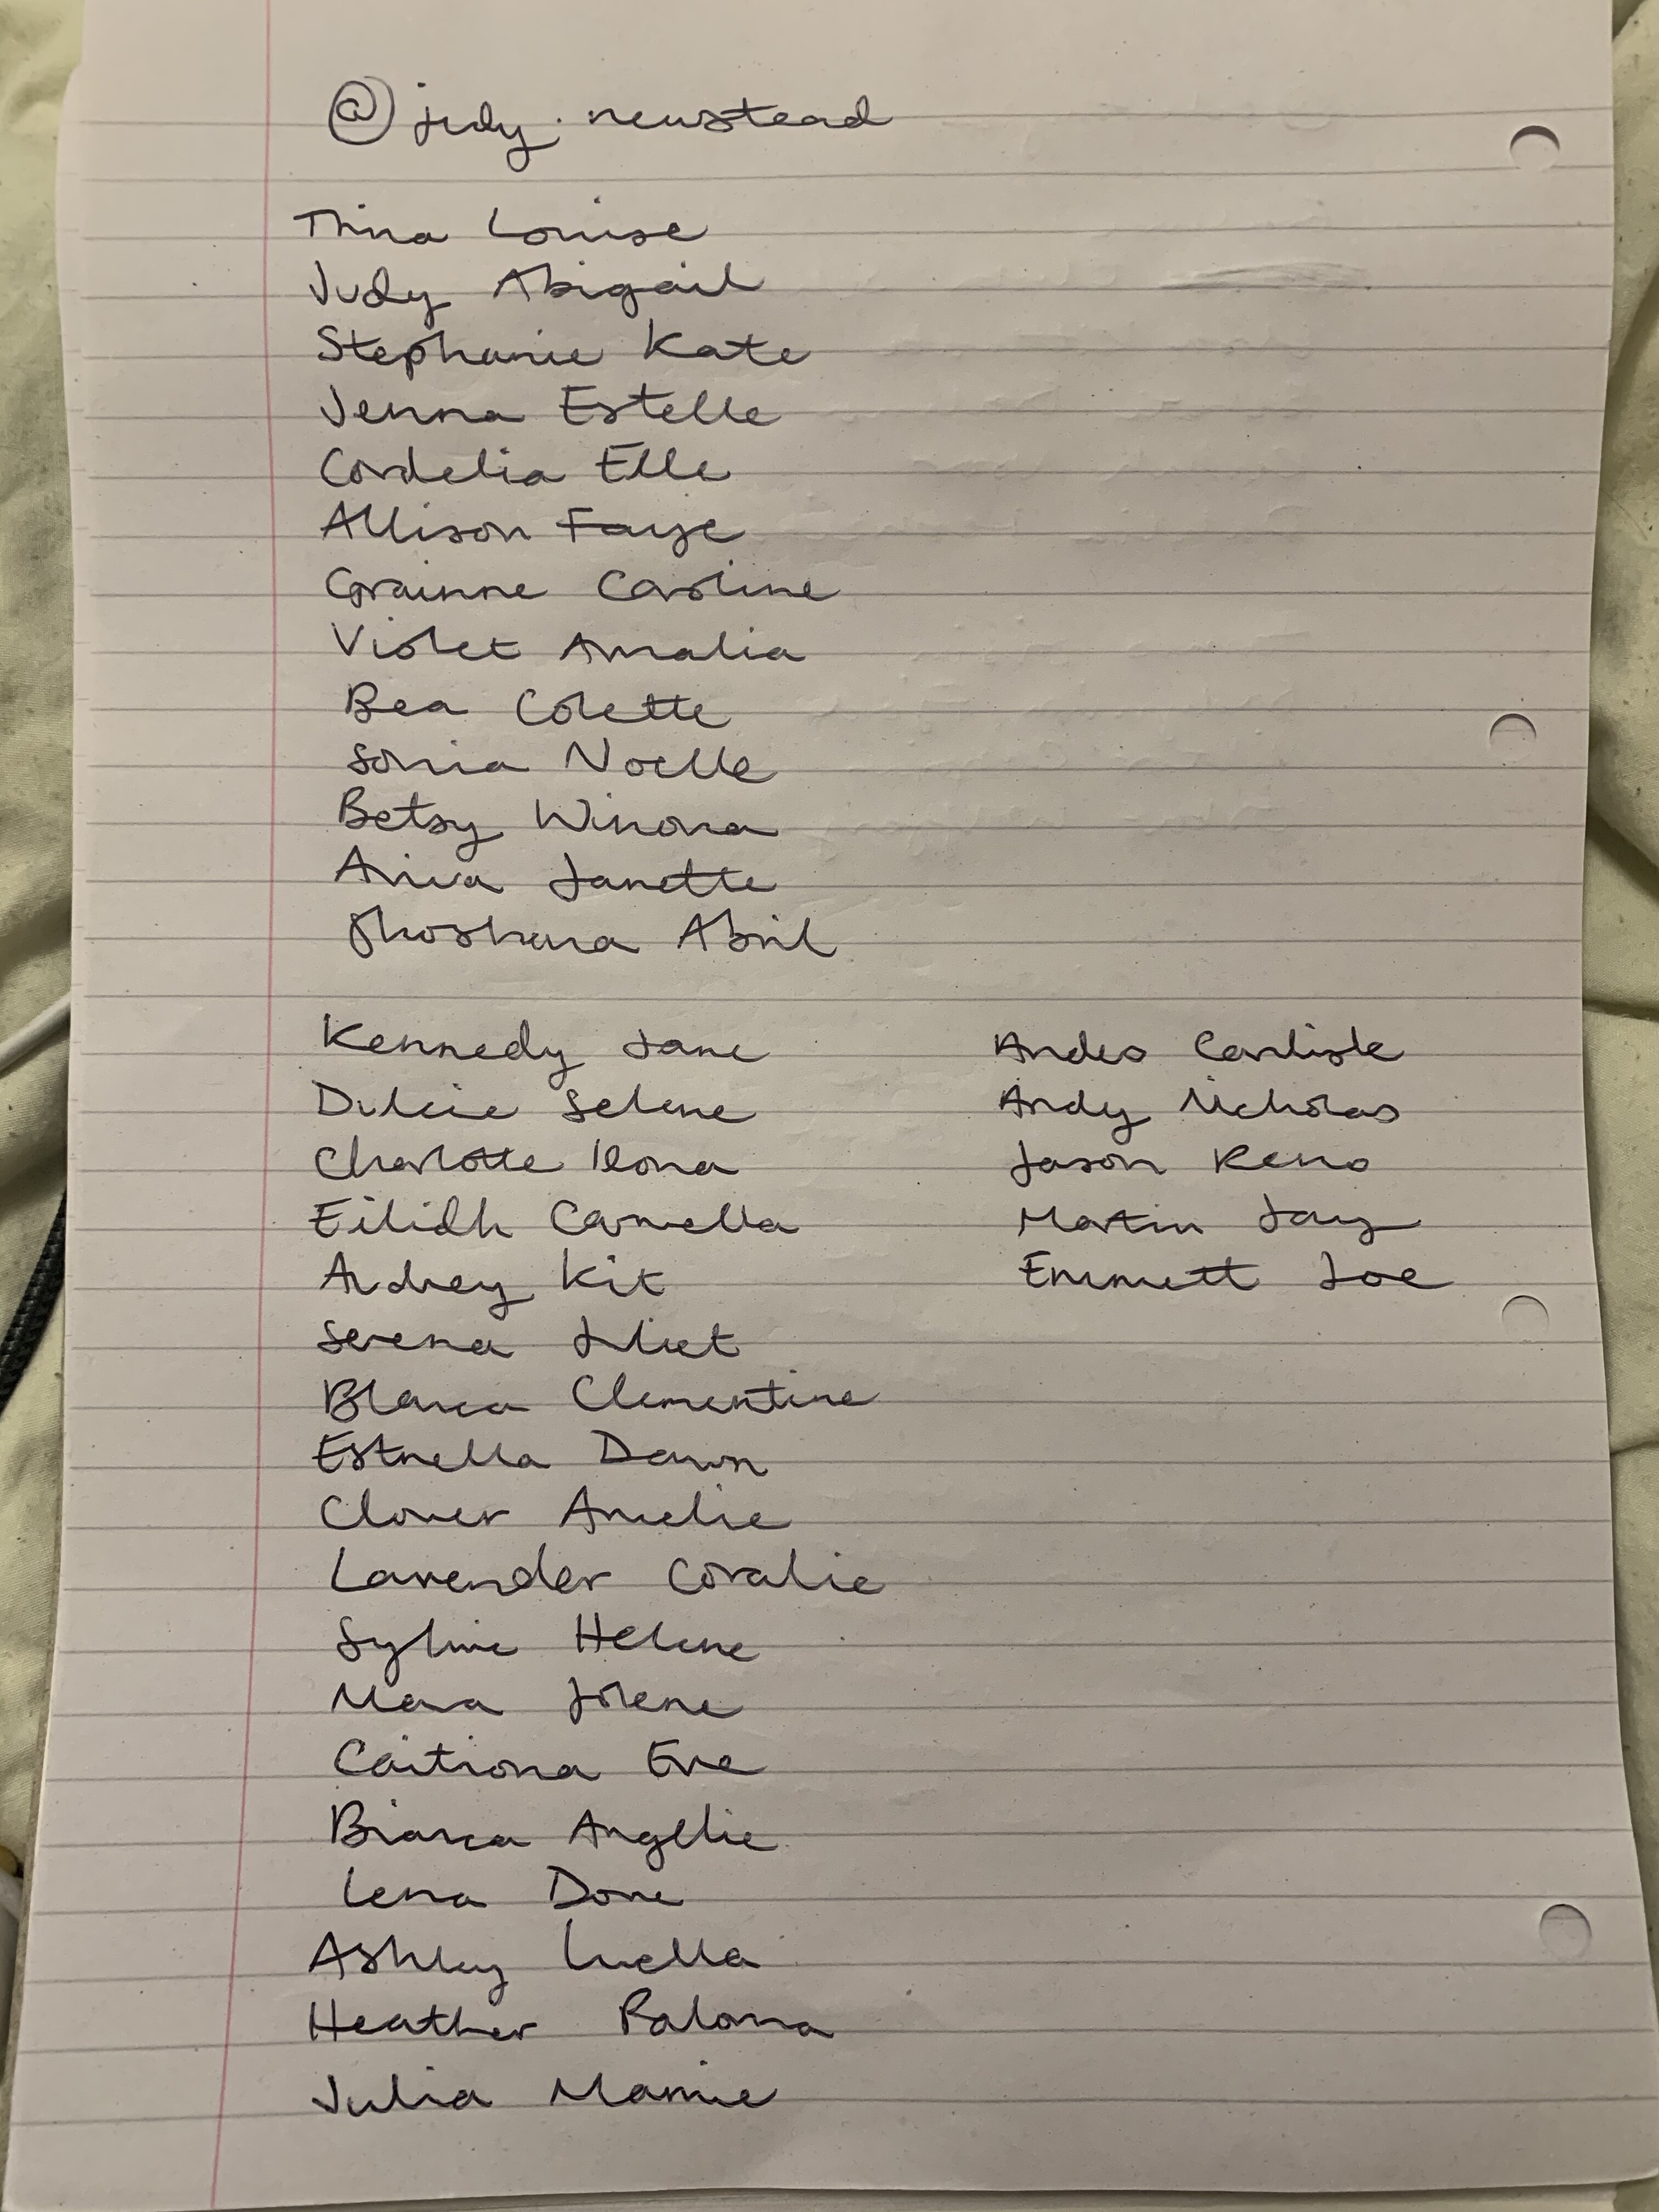 @judy.newstead
Thina Louise
Judy Abigail
Stephanie Kate
Jenna Estelle
Cordelia Elle
Allison Faye
Grainne Caroline
Violet Amalia
Bea Colette
Sonia Noelle
Betsy Winona
Janette
Abril
Kennedy Jane
Dulcie Selene
Charlotte Ilona
Eilidh Camella
Audrey Kit
Serena Juliet
Blanca Clementine
Estrella Dawn
Clover Amelie
Lavender Coralie
Sylvie Helene
Jolene
Caitriona Eve
Bianca Angelie
Lena Dove
Ashley Luella
Heather Paloma
Julia Mamie
Carlisle
Andy Nicholas
Jason Reno
Martin Jay
Emmett Joe